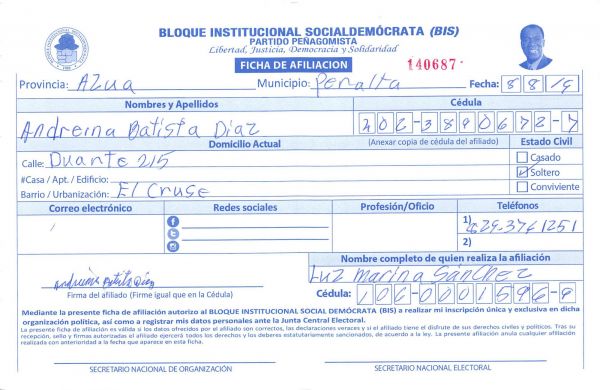 BLOQUE INSTITUCIONAL SOCIALDEMÓCRATA (BIS)
PARTIDO PEÑAGOMISTA
Libertad, Justicia, Democracia y Solidaridad
FICHA DE AFILIACION
140687
Provincia: Azua Municipio: Peralta Fecha: 8 8 19
Nombres y Apellidos Cédula
Andreina Batista Diaz 402-3890678-7
Domicilio Actual (Anexar copia de cédula del afiliado) Estado Civil
Calle: Duarte 215 Casado
#Casa / Apt. / Edificio: Soltero
Barrio / Urbanización: El Cruse Conviviente
Correo electrónico Redes sociales Profesión/Oficio Teléfonos
1) 829.3761251
2)
Nombre completo de quien realiza la afiliación
Luz Marina Sánchez
Andreina Batista Diaz
Firma del afiliado (Firme igual que en la Cédula) Cédula: 106-0001596-9
Mediante la presente ficha de afiliación autorizo al BLOQUE INSTITUCIONAL SOCIAL DEMÓCRATA (BIS) a realizar mi inscripción única y exclusiva en dicha
organización política, así como a registrar mis datos personales ante la Junta Central Electoral.
La presente ficha de afiliación es válida si los datos ofrecidos por el afiliado son correctos, las declaraciones veraces y si el afiliado tiene el disfrute de sus derechos civiles y políticos. Tras su
recepción, sello y firmas autorizadas el afiliado ejercerá todos los derechos y los deberes estatutariamente sancionados, de acuerdo a la ley. La presente afiliación anula cualquier afiliación
realizada con anterioridad a la fecha que aparece en esta ficha.
SECRETARIO NACIONAL DE ORGANIZACIÓN SECRETARIO NACIONAL ELECTORAL